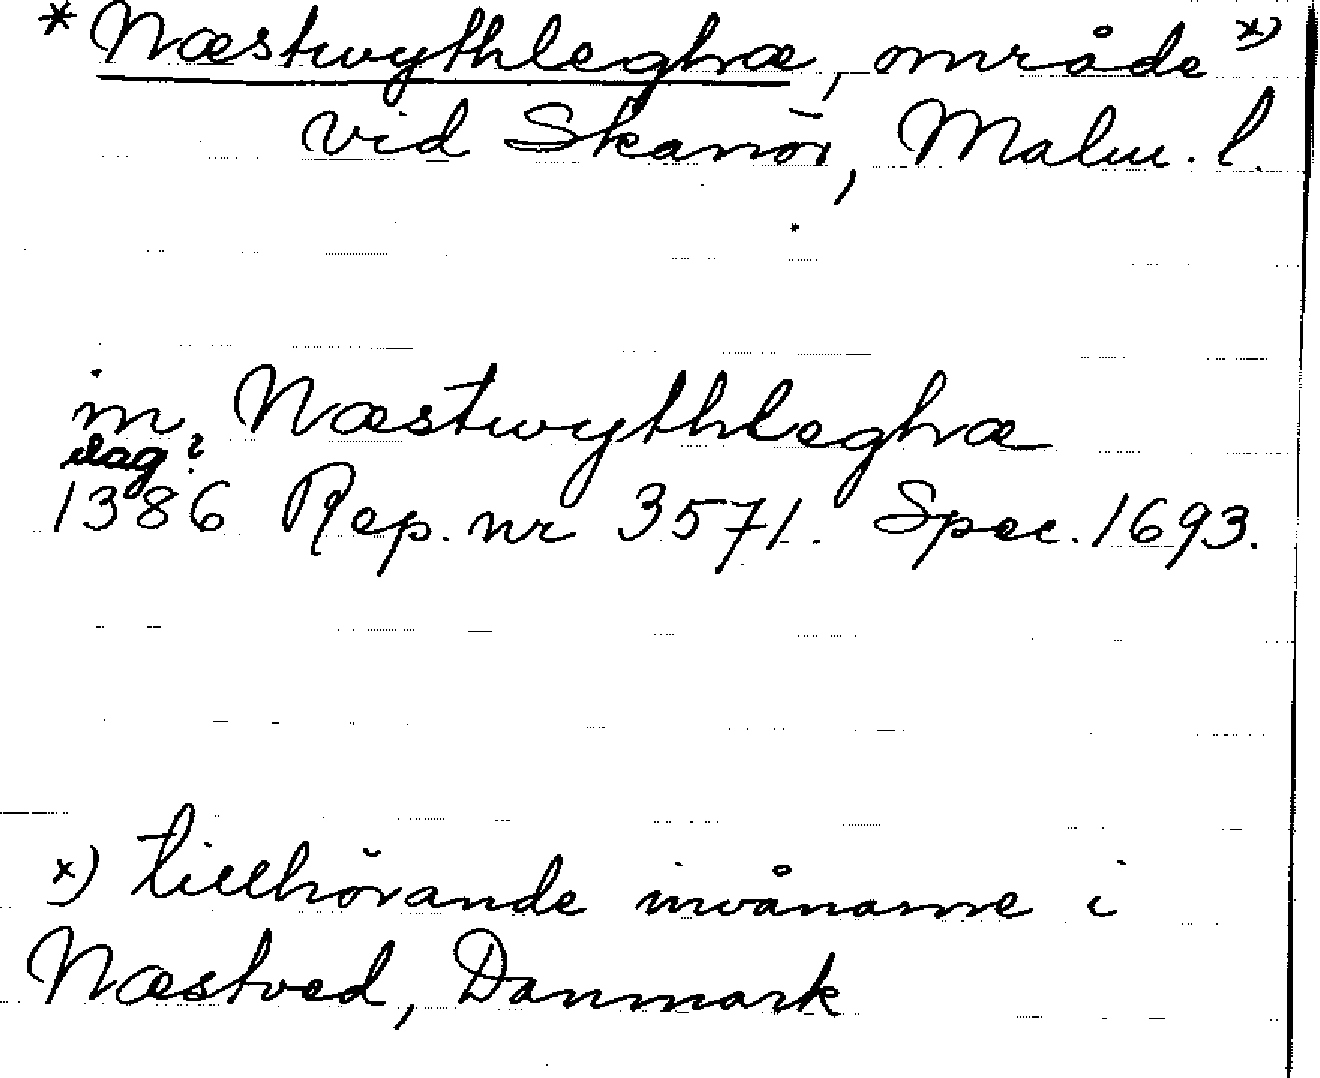 *Næstwythleghæ, område x)
vid Skanör, Malm. l.
in Næstwythleghæ
dag?
1386 Rep. nr 3571. Spec. 1693.
x) tillhörande invånarne i
Næstved, Danmark